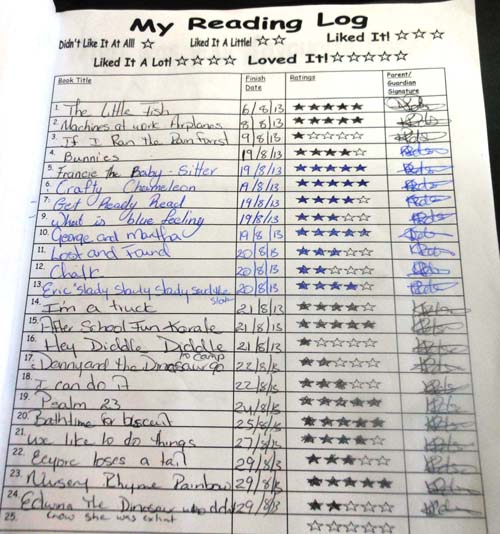 My Reading Log
Didn't Like It At All! ☆ Liked It A Little! ☆☆ Liked It! ☆☆☆
Liked It A Lot! ☆☆☆☆ Loved It! ☆☆☆☆☆
Book Title Finish Date Ratings Parent/Guardian Signature
1. The Little Fish 6/8/13
2. Machines at work Airplanes 8/8/13
3. If I Ran the Rain Forrest 9/8/13
4. Bunnies 19/8/13
5. Francie the Baby-Sitter 19/8/13
6. Crafty Chameleon 19/8/13
7. Get Ready Read 19/8/13
9. What is blue feeling 19/8/13
10. George and Martha 19/8/13
11. Lost and Found 20/8/13
12. Chalk 20/8/13
13. Eric slowly slowly slowly 20/8/13
14. I'm a truck 21/8/13
15. After School Fun Karate 21/8/13
16. Hey Diddle Diddle 21/8/13
17. Danny and the Dinosaur go to camp 22/8/13
18. I can do it 22/8/13
19. Psalm 23 24/8/13
20. Bathtime for biscuit 25/8/13
21. we like to do things 27/8/13
22. loses a tail 29/8/13
23. Nursery Rhyme Rainbow 29/8/13
24. Edwina the Dinosaur who didnt 29/8/13
25. know she was extint